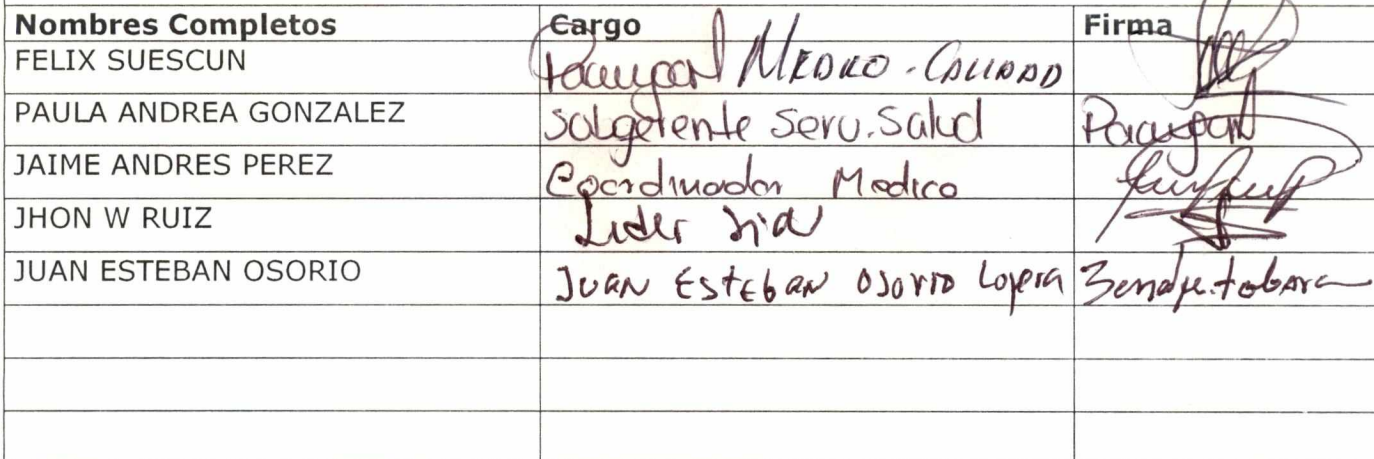 Nombres Completos Cargo Firma
FELIX SUESCUN MEDICO . CALIDAD
PAULA ANDREA GONZALEZ Subgerente Serv. Salud
JAIME ANDRES PEREZ Coordinador Medico
JHON W RUIZ Lider
JUAN ESTEBAN OSORIO JUAN EstEbaN OSORIO Lopera